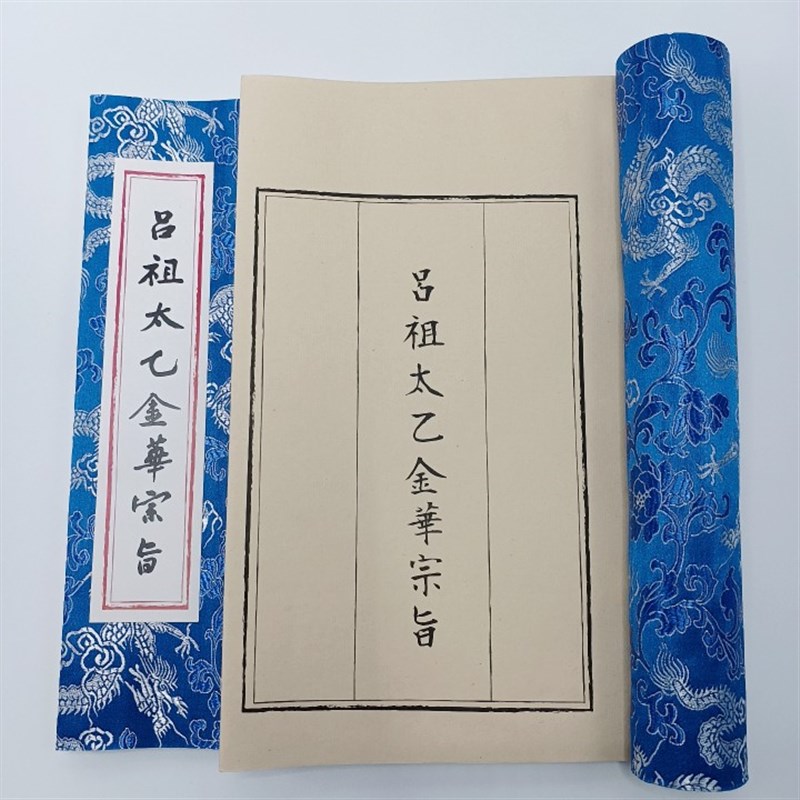 呂祖太乙金華宗旨
呂祖太乙金華宗旨